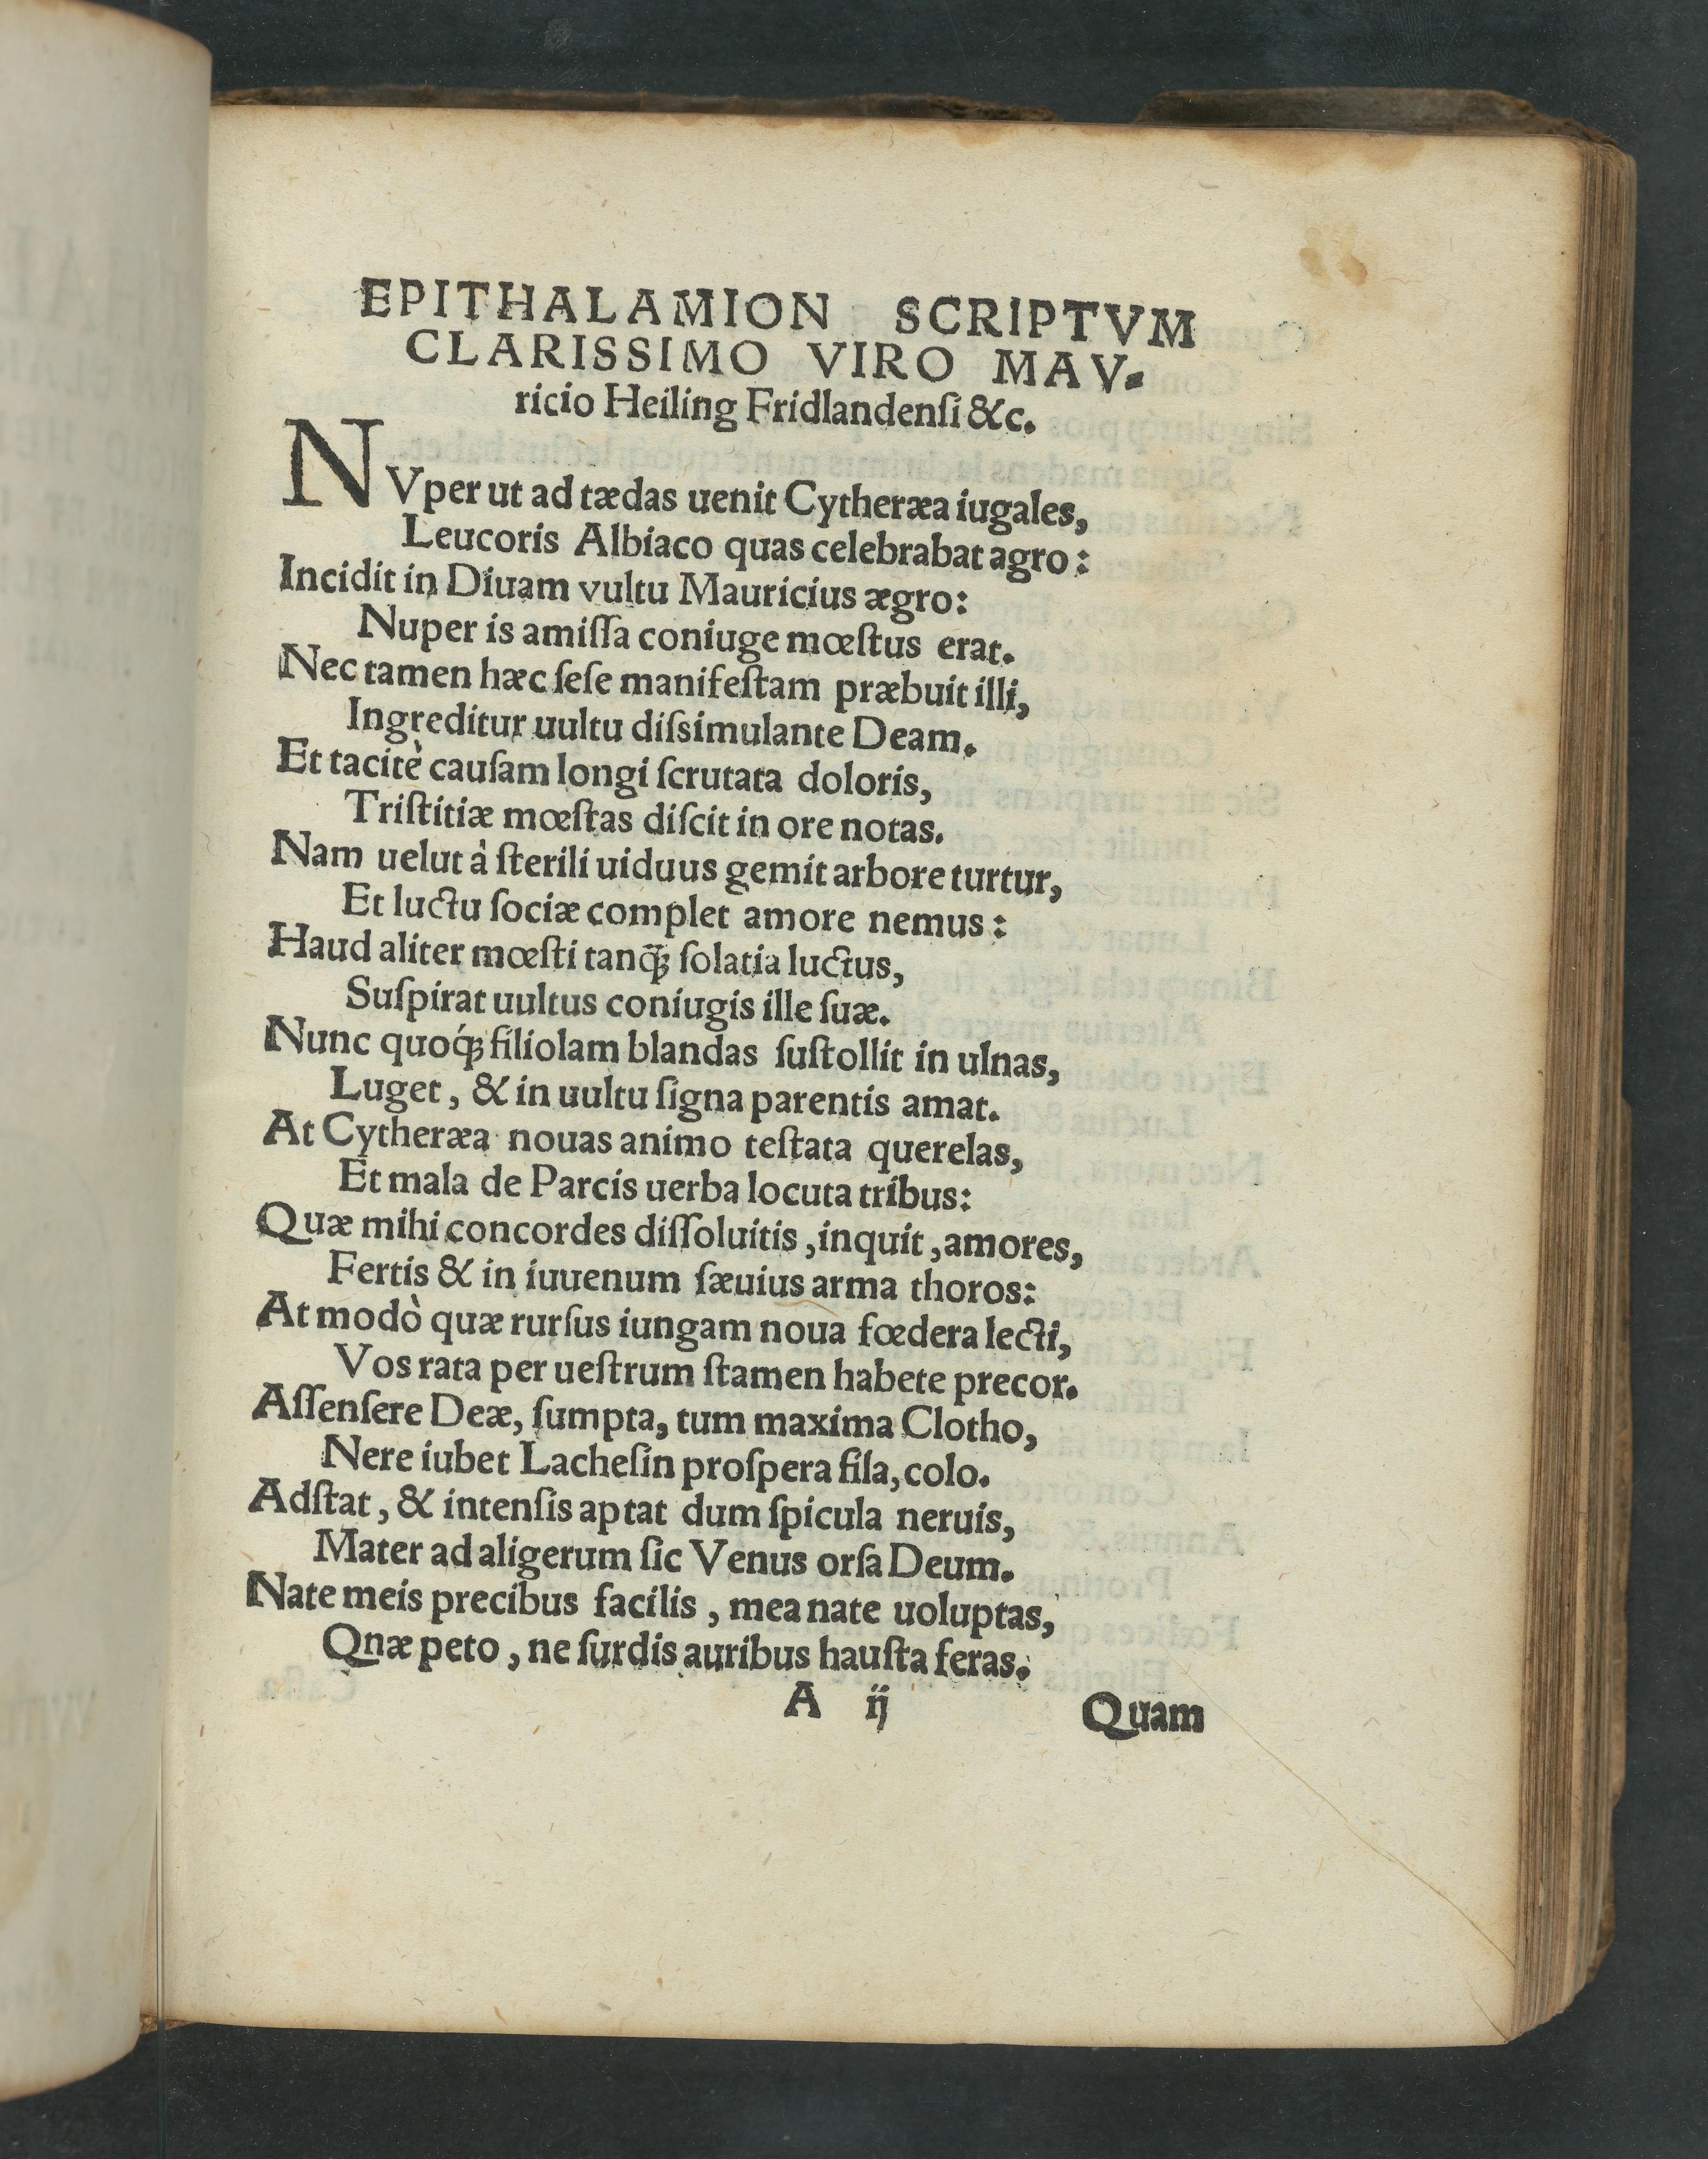 EPITHALAMION SCRIPTVM
CLARISSIMO VIRO MAV-
ricio Heiling Fridlandenſi &c.
NVper ut ad tædas uenit Cytheræa iugales,
Leucoris Albiaco quas celebrabat agro:
Incidit in Diuam vultu Mauricius ægro:
Nuper is amiſſa coniuge mœſtus erat.
Nec tamen hæc ſeſe manifeſtam præbuit illi,
Ingreditur uultu diſsimulante Deam.
Et tacitè cauſam longi ſcrutata doloris,
Triſtitiæ mœſtas diſcit in ore notas.
Nam uelut à ſterili uiduus gemit arbore turtur,
Et luctu ſociæ complet amore nemus:
Haud aliter mœſti tanq̃ꝫ ſolatia luctus,
Suſpirat uultus coniugis ille ſuæ.
Nunc quoq́ꝫ filiolam blandas ſuſtollit in ulnas,
Luget, & in uultu ſigna parentis amat.
At Cytheræa nouas animo teſtata querelas,
Et mala de Parcis uerba locuta tribus:
Quæ mihi concordes diſſoluitis, inquit, amores,
Fertis & in iuuenum ſæuius arma thoros:
At modò quæ rurſus iungam noua fœdera lecti,
Vos rata per ueſtrum ſtamen habete precor.
Aſſenſere Deæ, ſumpta, tum maxima Clotho,
Nere iubet Lacheſin proſpera fila, colo.
Adſtat, & intenſis aptat dum ſpicula neruis,
Mater ad aligerum ſic Venus orſa Deum.
Nate meis precibus facilis, mea nate uoluptas,
Qnæ peto, ne ſurdis auribus hauſta feras.
A ij Quam